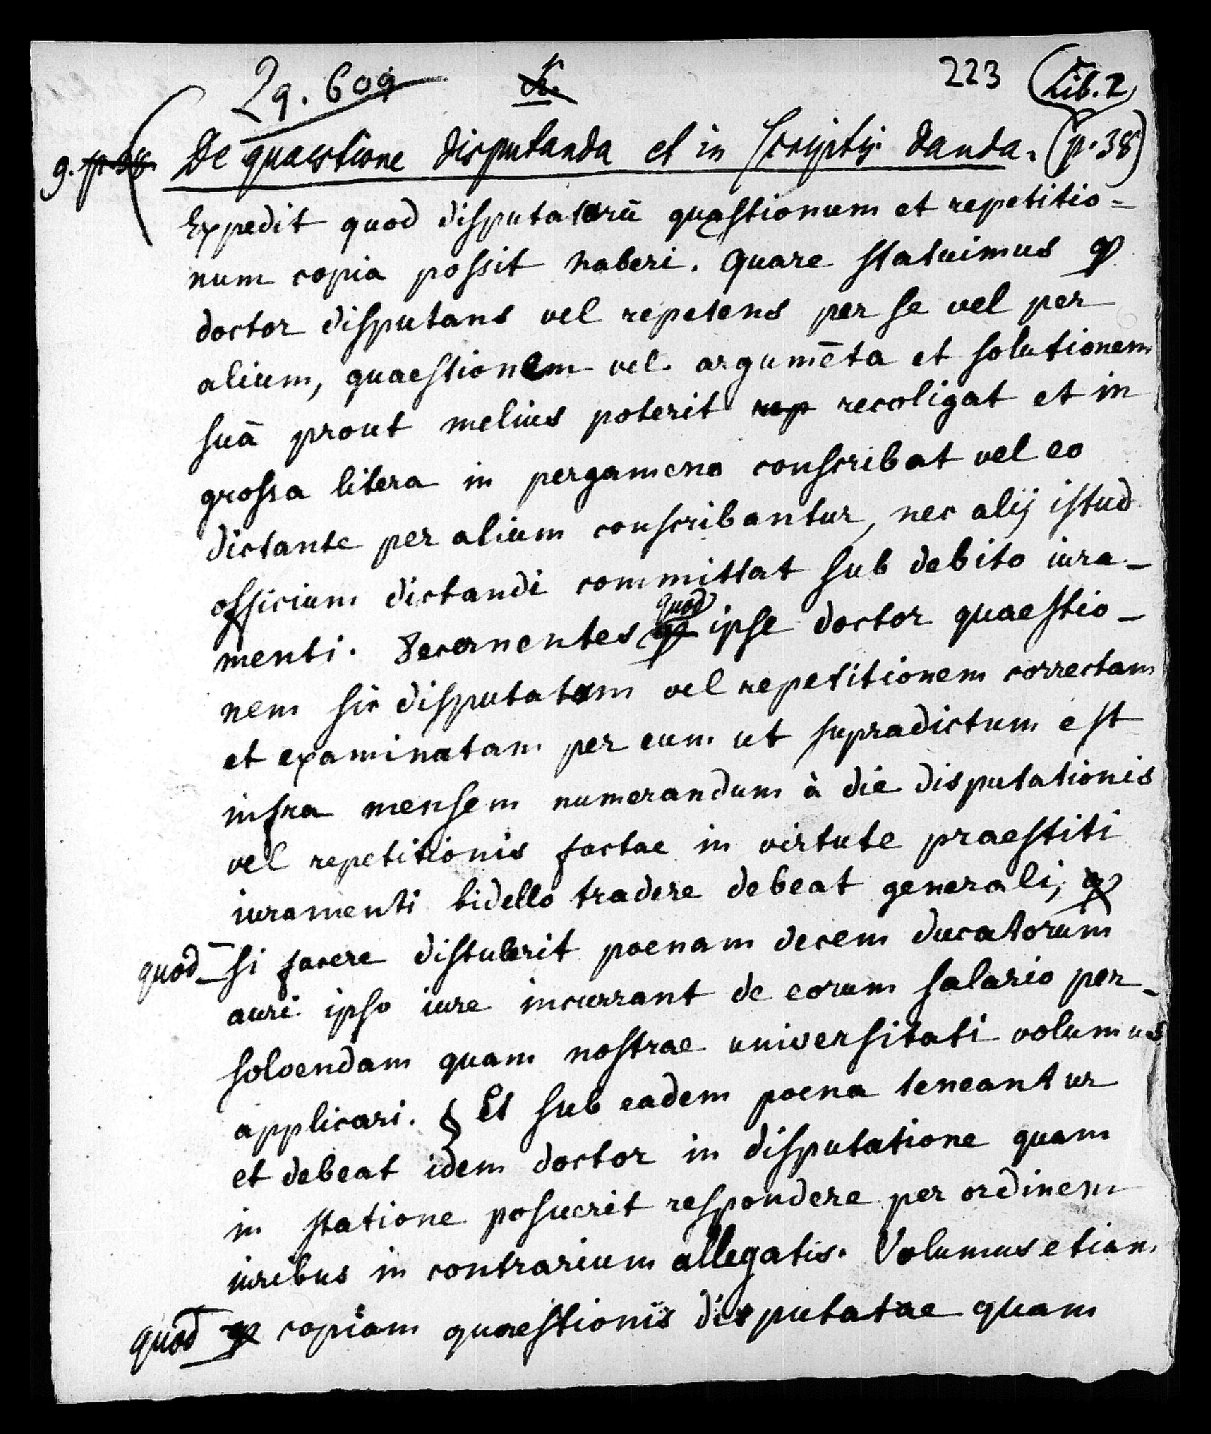 29. 609 223 Lib. 2
g. p 38 De quaestione disputanda et in scriptis danda. (p. 38)
Expedit quod disputatarū quaestionum et repetitio-
num copia possit haberi. Quare statuimus ꝙ
doctor disputans vel repetens per se vel per
alium, quaestionem vel argumēta et solutionem
suā prout melius poterit rep recoligat et in
grossa litera in pergameno conscribat vel eo
dictante per alium conscribantur, nec alij istud
officium dictandi committat sub debito iura-
menti. Decernentes quod ipse doctor quaestio-
nem sic disputatam vel repetitionem correctam
et examinatam per eum ut supradictum est
infra mensem numerandum à die disputationis
vel repetitionis factae in virtute praestiti
iuramenti bidello tradere debeat generali, ꝙ
quod si facere distulerit poenam decem ducatorum
auri ipso iure incurrant de eorum salario per-
solvendam quam nostrae universitati volumus
applicari. § Et sub eadem poena teneantur
et debeat idem doctor in disputatione quam
in statione posuerit respondere per ordinem
iuribus in contrarium allegatis. Volumus etiam
quod ꝙ copiam quaestionis disputatae quam